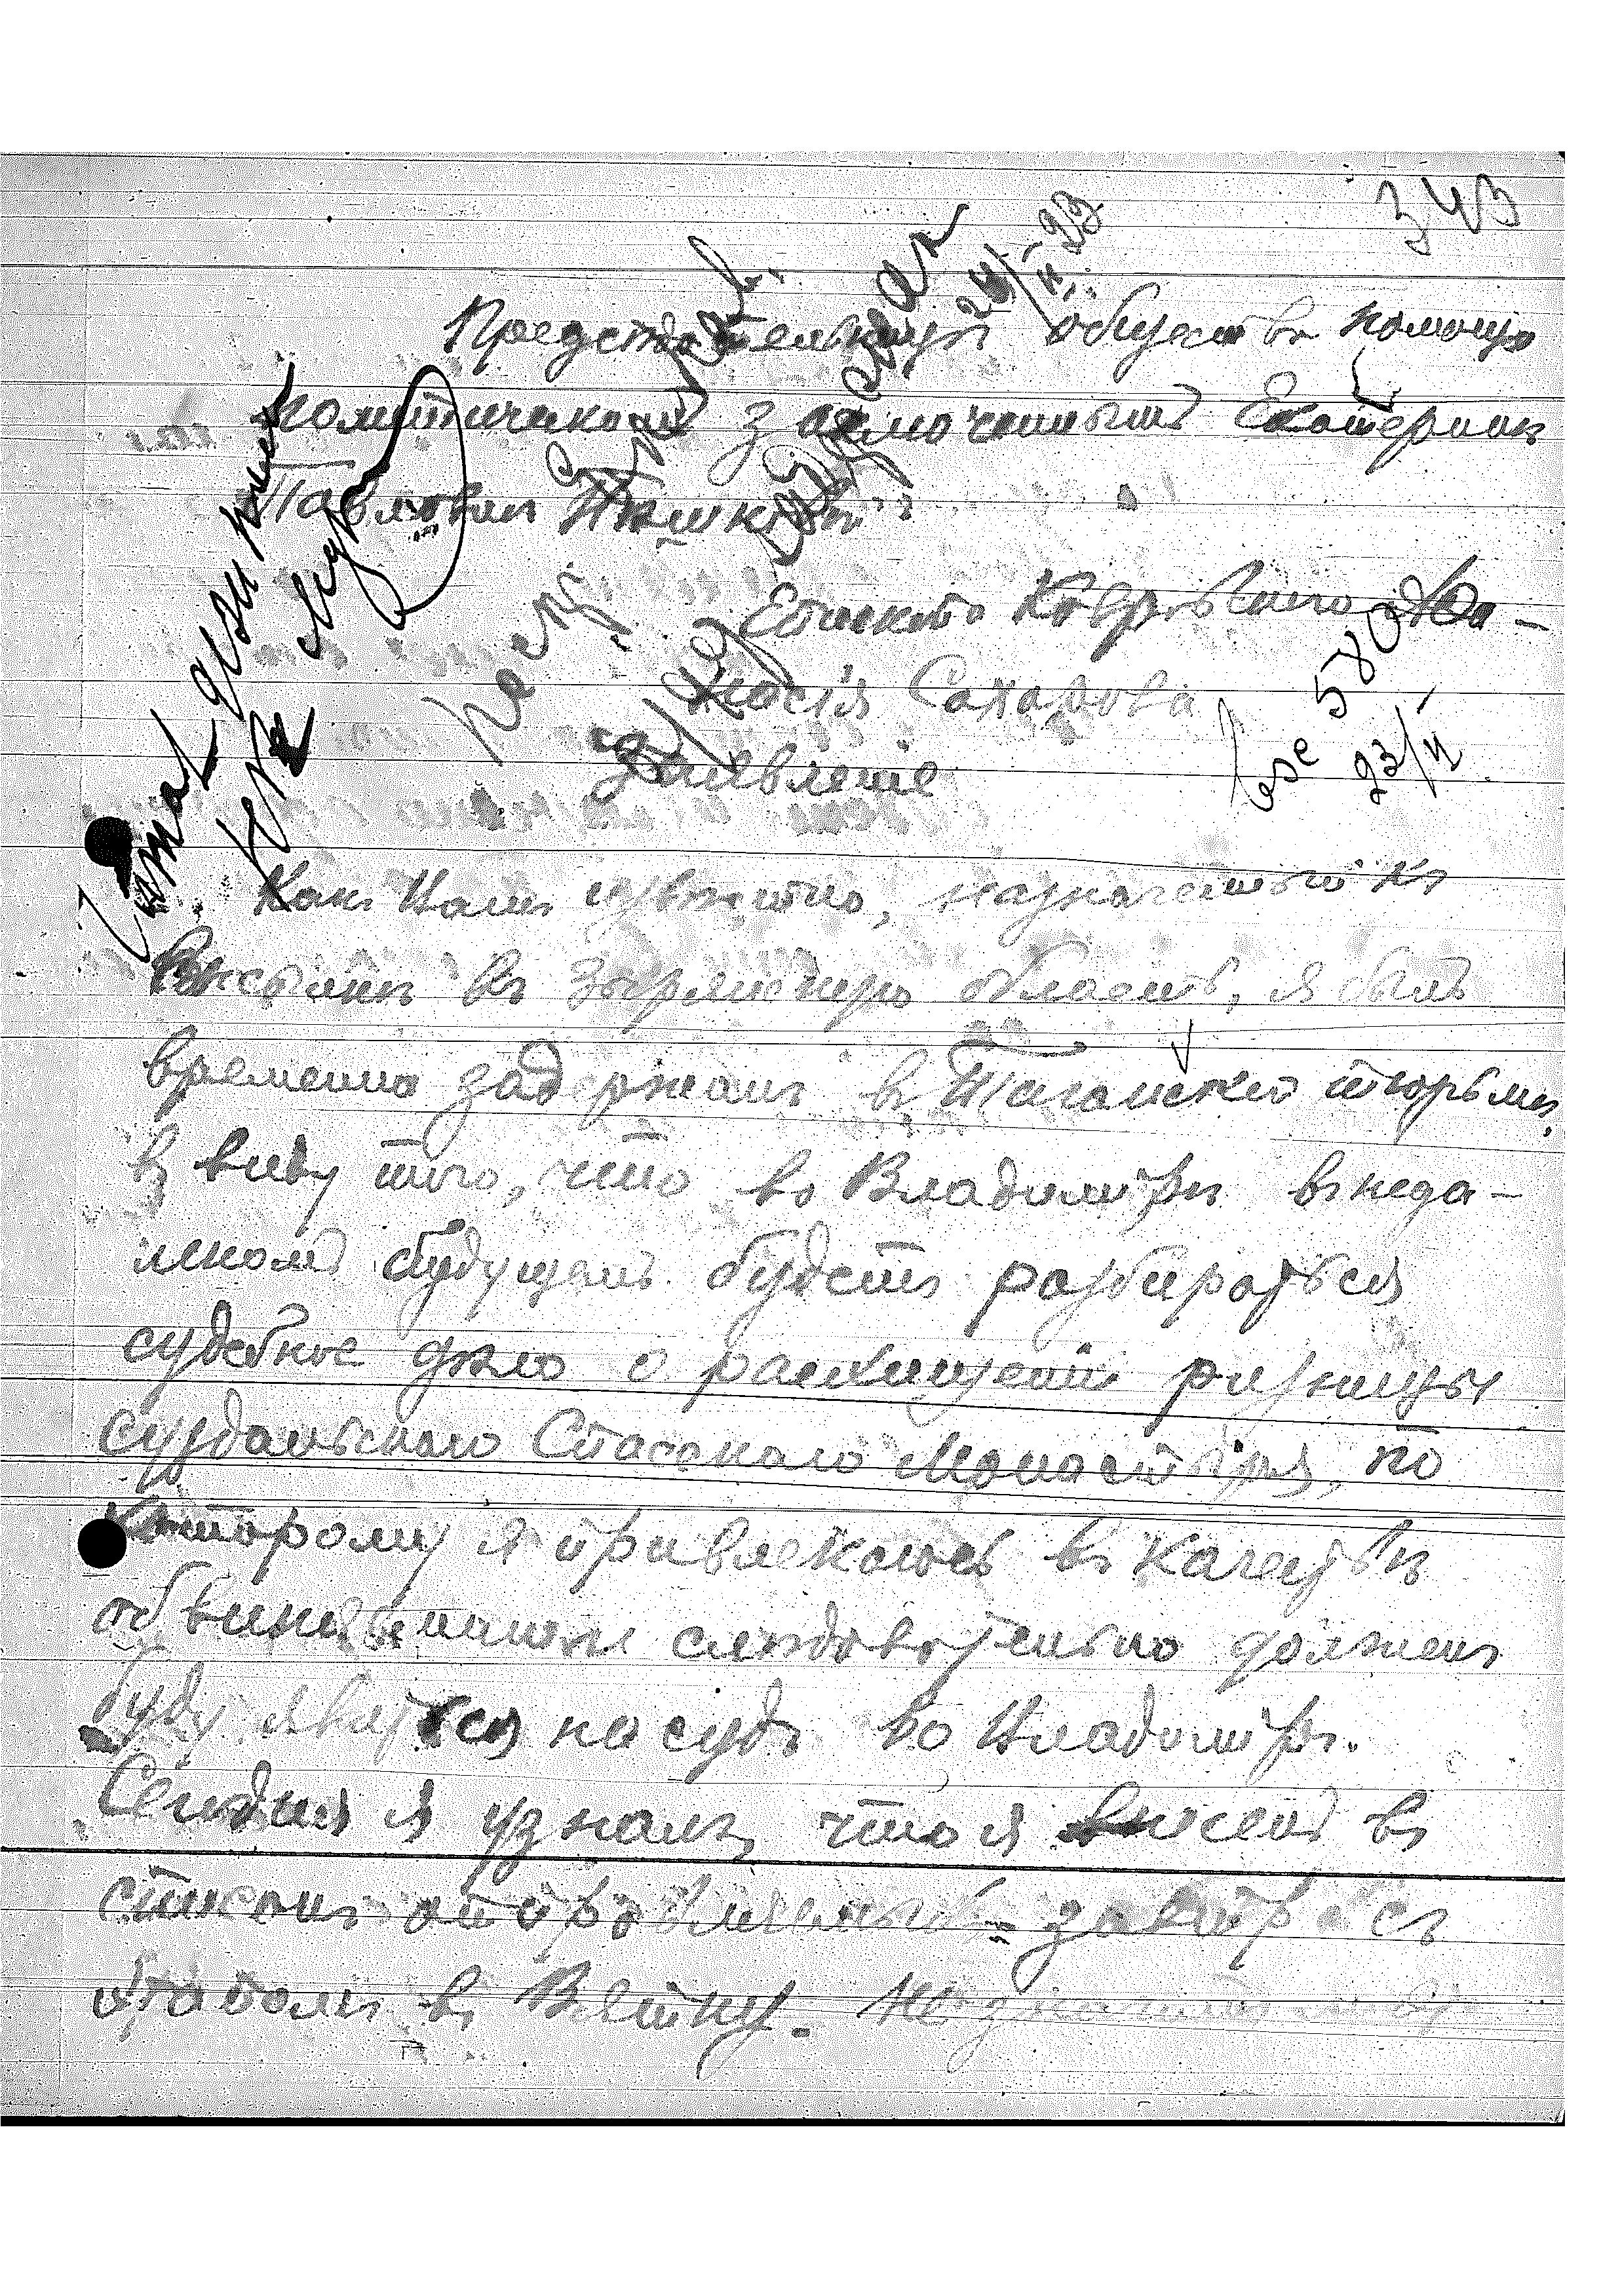 343
Председательницѣ общества помощи
политическимъ заключеннымъ Екатеринѣ
Павловнѣ Пѣшковой
Епископа Ковровскаго Аѳа-
насія Сахарова
Заявленіе
Какъ Вамъ извѣстно, назначенный къ
высылкѣ въ Зырянскую область, я былъ
временно задержанъ въ Таганской тюрьмѣ
въ виду того, что во Владимірѣ въ неда-
лекомъ будущемъ будетъ разбираться
судебное дѣло о расхищеніи ризницы
суздальскаго Спасскаго монастыря, по
которому я привлекаюсь въ качествѣ
обвиняемаго и слѣдовательно долженъ
буду явиться на судъ во Владимірѣ.
Сегодня я узналъ, что я внесенъ въ
списокъ отправляемыхъ завтра съ
этапомъ въ Вятку. Не
24/II-23
580
23/II